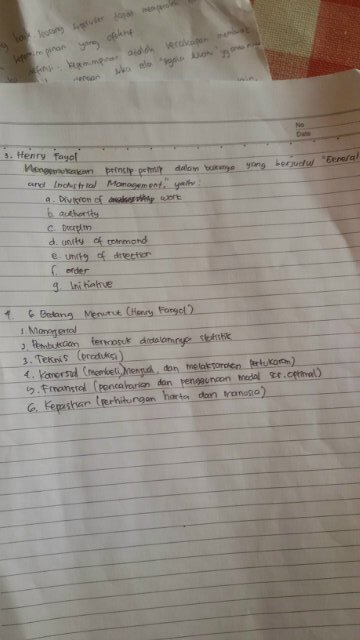 baik. Seorang
kepemimpinan yang efektif
definisi: kepemimpinan adalah kecakapan
dengan suka rela
No
Date
3. Henry Fayol
Mengemukakan prinsip-prinsip dalam bukunya yang berjudul "General
and Industrial Management," yaitu:
a. Division of work
b. authority
c. Disciplin
d. unity of command
e. unity of direction
f. order
g. Initiative
4. 6 Bidang Menurut (Henry Fayol)
1. Manajerial
2. Pembukuan termasuk didalamnya statistik
3. Teknis (produksi)
4. Komersial (membeli, Menjual, dan melaksanakan pertukaran)
5. Finansial (pencaharian dan penggunaan modal scr. optimal)
6. Kepastian (perhitungan harta dan manusia)